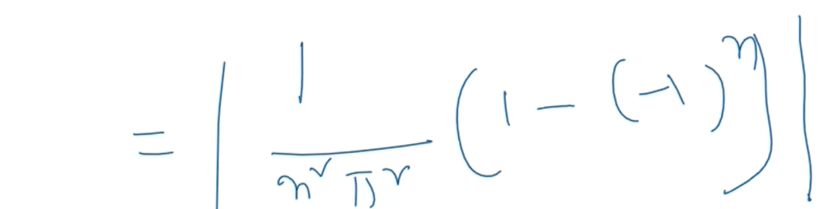 = | 1/(n² π²) (1 - (-1)^n) |